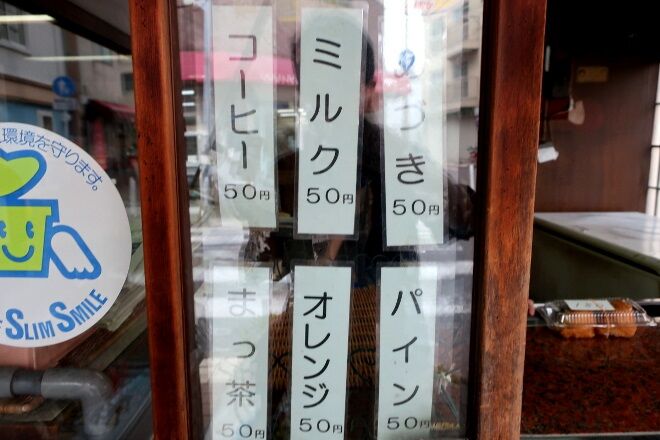 環境を守ります。
SLIM SMILE
コーヒー
50円
ミルク
50円
づき
50円
まっ茶
50円
オレンジ
50円
パイン
50円